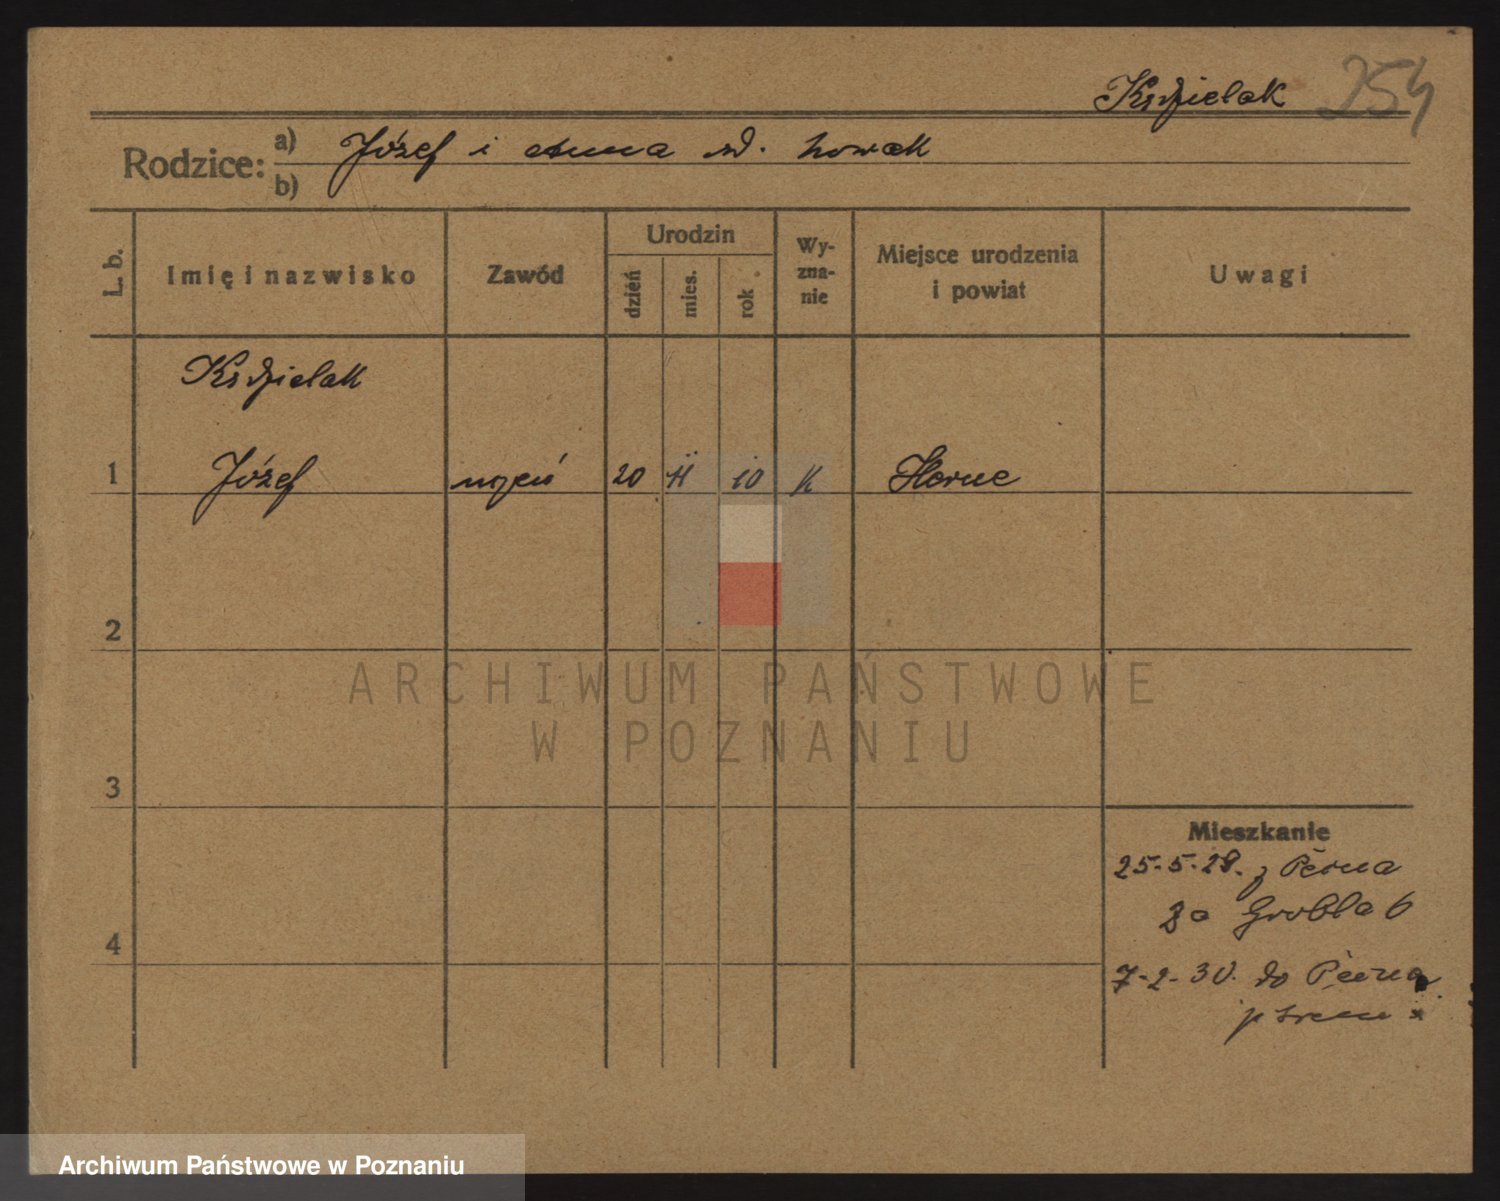 Ksdzielak 254
Rodzice: a) Józef i Anna zd. Nowak
b)
L. b. Imię i nazwisko Zawód Urodzin dzień mies. rok Wy-zna-nie Miejsce urodzenia i powiat Uwagi
Ksdzielak
1 Józef uczeń 20 11 10 K Herne
2
3
4
Mieszkanie
25-5-28. z
Grobla 6
7-2-30. do
p Śrem
ARCHIWUM PAŃSTWOWE
W POZNANIU
Archiwum Państwowe w Poznaniu